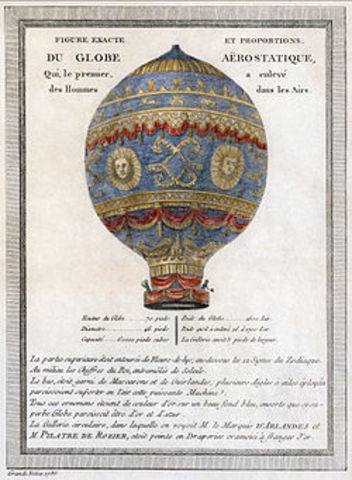 FIGURE EXACTE ET PROPORTIONS.
DU GLOBE AËROSTATIQUE,
Qui, le premier, a enlevé
des Hommes dans les Airs.
Hauteur du Globe 70 pieds
Diametre 46 pieds
Capacité 60000 pieds cubes
Poids du Globe 1600 Liv.
Poids qu'il a enlevé
La Gallerie avoit 3 pieds de largeur.
La partie superieure étoit entourée de Fleurs-de-lys; au dessous les 12 Signes du Zodiaque.
Au milieu les Chiffres du Roi, entremêlés de Soleils.
Le bas, étoit garni de Mascarons et de Guirlandes; plusieurs Aigles à ailes éployées
paroissoient supporter en l'air cette puissante Machine.
Tous ces ornemens étoient de couleur d'or sur un beau fond bleu, ensorte que ce su-
perbe Globe paroissoit être d'or et d'azur.
La Gallerie circulaire, dans laquelle on voyoit M. le Marquis D'ARLANDES et
M. PILATRE DE ROZIER, étoit peinte en Draperies cramoisi à franges d'or.